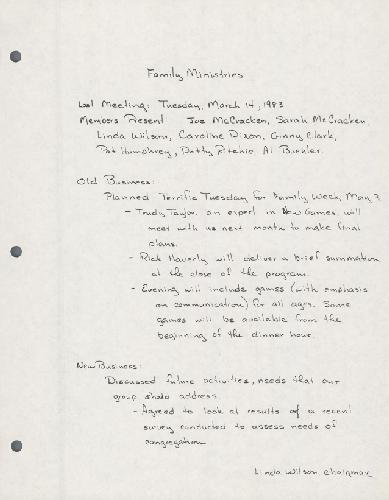 Family Ministries
Last Meeting: Tuesday, March 14, 1983
Members Present: Joe McCracken, Sarah McCracken,
Linda Wilson, Caroline Dixon, Ginny Clark,
Pat Humphrey, Patty Ritchie, Al Buehler.
Old Business:
Planned Terrific Tuesday for Family Week, May 3
- Trudy Taylor, an expert in New Games, will
meet with us next month to make final
plans.
- Rick Haverly will deliver a brief summation
at the close of the program.
- Evening will include games (with emphasis
on communication) for all ages. Some
games will be available from the
beginning of the dinner hour.
New Business:
Discussed future activities, needs that our
group should address.
- Agreed to look at results of a recent
survey conducted to assess needs of
congregation
Linda Wilson Chairman